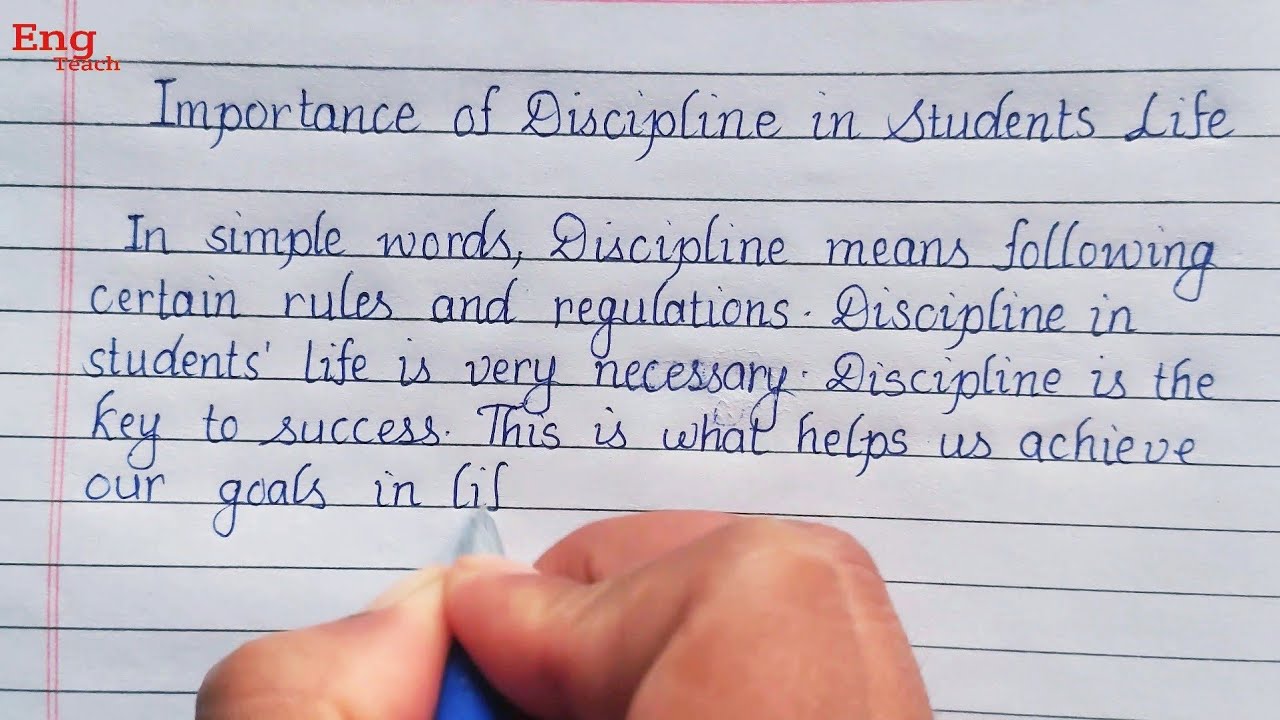 Eng
Teach
Importance of Discipline in Students Life
In simple words, Discipline means following
certain rules and regulations. Discipline in
students' life is very necessary. Discipline is the
key to success. This is what helps us achieve
our goals in lif